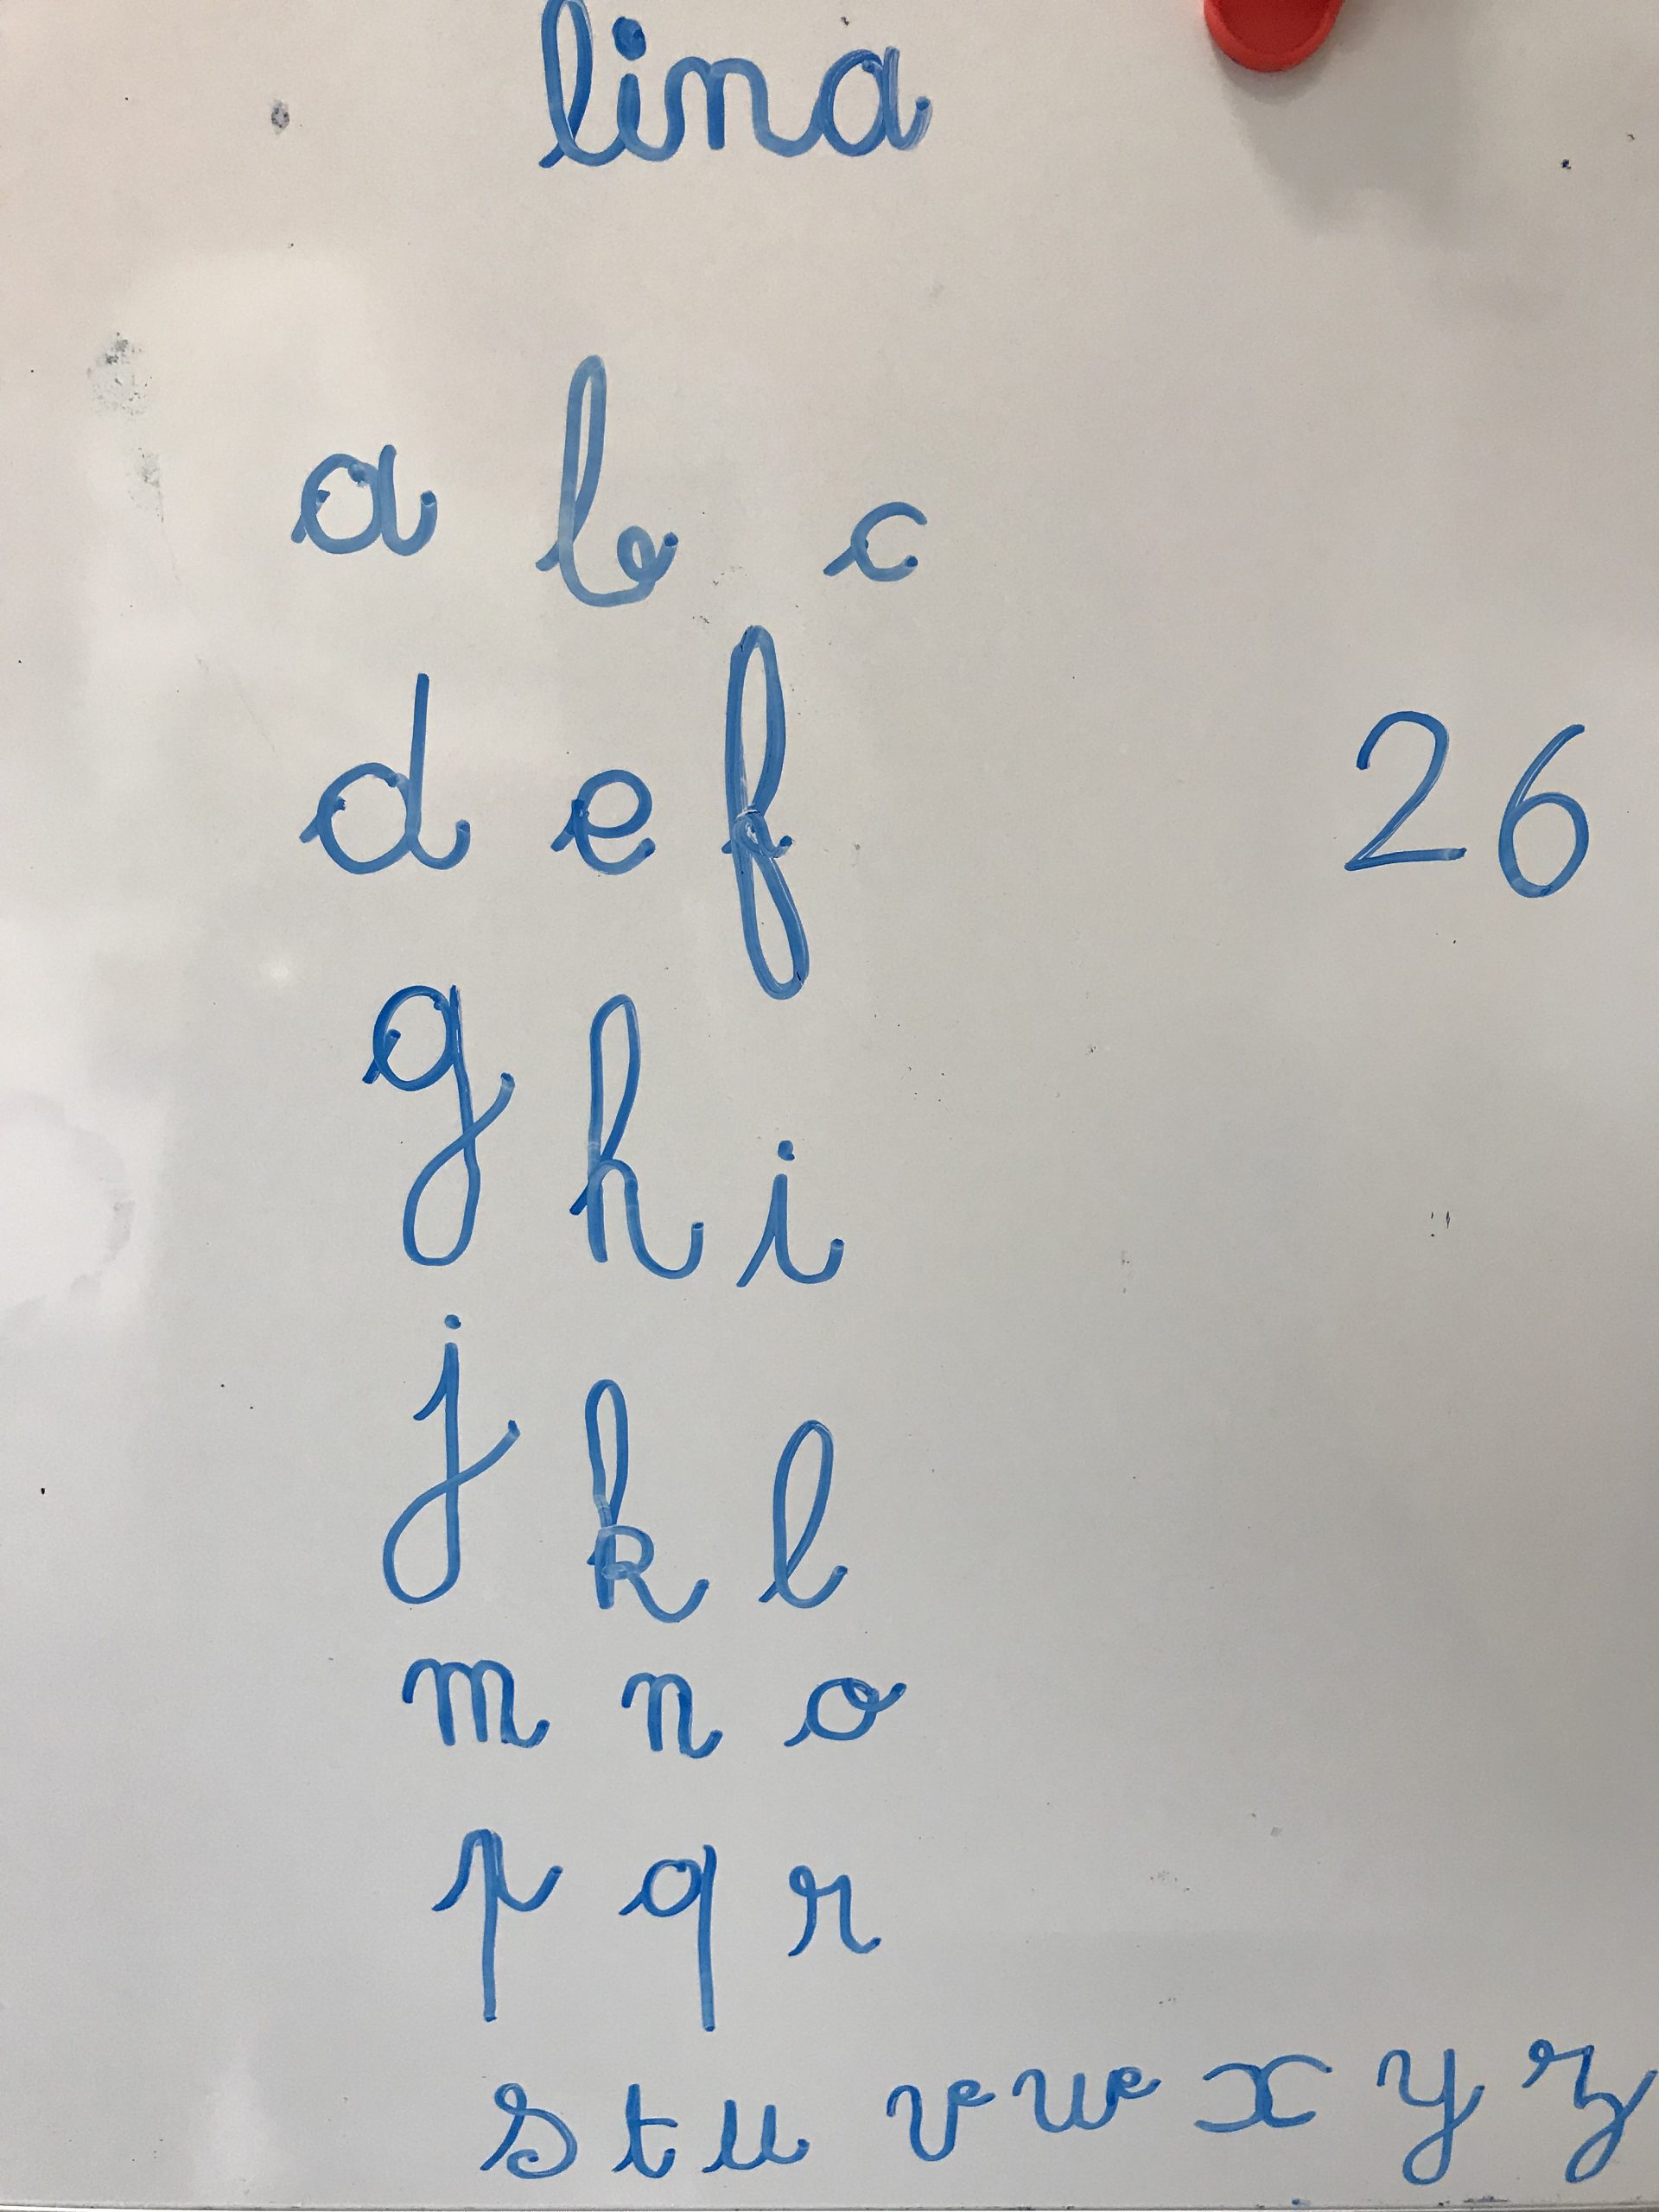 lina
a b c
d e f 26
g h i
j k l
m n o
p q r
s t u v w x y z